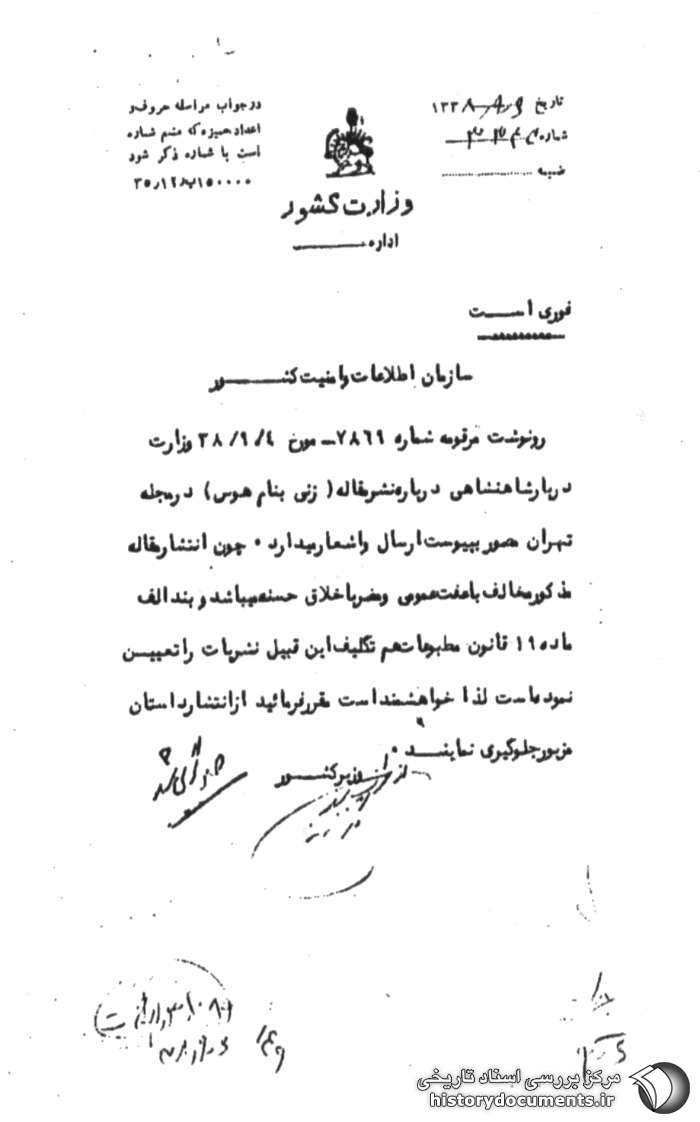 در جواب مراسله حروف و
اعداد ممیزه که متمم شماره
است با شماره ذکر شود
۱۵۰۰۰۰
تاریخ ۱۳۳۸
شماره
ضمیمه
وزارت کشور
اداره
فوری است
سازمان اطلاعات وامنیت کشور
رونوشت مرقومه شماره ۷۸۶۹ـ مورخ ۳۸/۹/۴ وزارت
دربارشاهنشاهی درباره نشرمقاله ( زنی بنام هوس ) درمجله
تهران مصور بپیوست ارسال واشعارمیدارد ۰ چون انتشارمقاله
مذکورمخالف باعفت عمومی ومضرباخلاق حسنه میباشد و بند الف
ماده ۱۹ قانون مطبوعات هم تکلیف این قبیل نشریات راتعییـن
نموده است لذا خواهشمند است مقررفرمائید ازانتشارداستان
مزبورجلوگیری نماینـد ۰
از طرف وزیرکشـور
مرکز بررسی اسناد تاریخی
historydocuments.ir